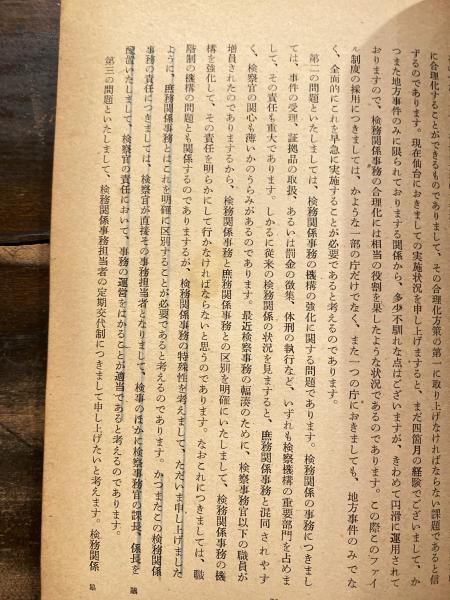 に合理化することができるものでありまして、その合理化方策の第一に取り上げなければならない課題であると信
ずるのであります。現在仙台におきましての実施状況を申し上げますと、まだ四箇月の経験でございまして、か
つまた地方事件のみに限られております関係から、多少不馴れな点はございますが、きわめて円滑に運用されて
おりますので、検務関係事務の合理化には相当の役割を果したような状況であるのであります。この際このファイ
ル制度の採用につきましては、かような一部の庁だけでなく、また一つの庁におきましても、地方事件のみでな
く、全面的にこれを早急に実施することが必要であると考えるのであります。
第二の問題といたしましては、検務関係事務の機構の強化に関する問題であります。検務関係の事務につきまし
ては、事件の受理、証拠品の取扱、あるいは罰金の徴集、体刑の執行など、いずれも検察機構の重要部門を占めま
して、その責任も重大であります。しかるに従来の検務関係の状況を見ますると、庶務関係事務と混同されやす
く、検察官の関心も薄いかのうらみがあるのであります。最近検察事務の輻湊のために、検察事務官以下の職員が
増員されたのでありまするから、検務関係事務と庶務関係事務との区別を明確にいたしまして、検務関係事務の機
構を強化して、その責任を明らかにして行かなければならないと思うのであります。なおこれにつきましては、職
階制の機構の問題とも関係するのでありますが、検務関係事務の特殊性を考えまして、ただいま申し上げました
ように、庶務関係事務とはこれを明確に区別することが必要であると考えるのであります。かつまたこの検務関係
事務の責任につきましては、検察官が直接その事務担当者となりまして、検事のほかに検察事務官の課長、係長を
配置いたしまして、検察官の責任において、事務の運営をはかることが適当であると考えるのであります。
第三の問題といたしまして、検務関係事務担当者の定期交代制につきまして申し上げたいと考えます。検務関係